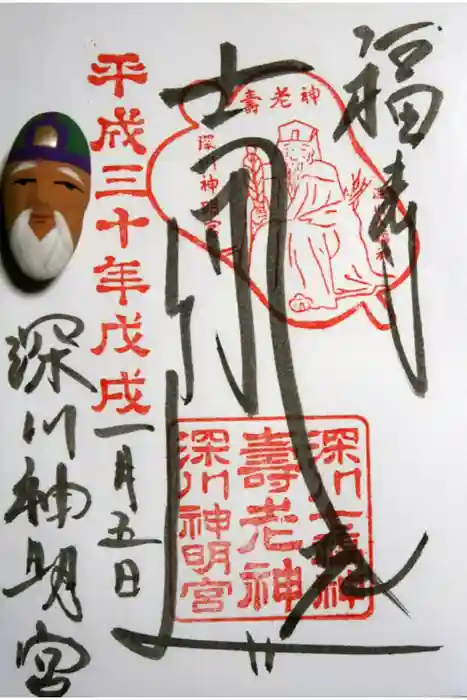 福寿
壽老神
深川神明宮
平成三十年戊戌
一月五日
深川神明宮
深川七福神
壽老神
深川神明宮